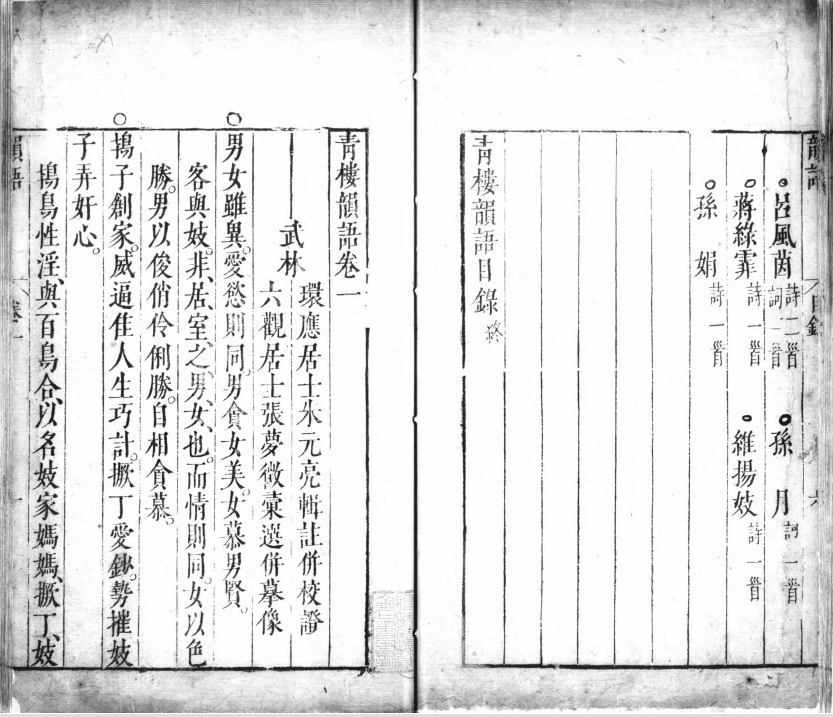 韻語
目錄
六
呂風茵 詩二首 詞一首
孫月 詞一首
蔣綠霏 詩一首
維揚妓 詩一首
孫娟 詩一首
青樓韻語目錄 終
青樓韻語卷一
武林
環應居士朱元亮輯註併校證
六觀居士張夢徵彙選併摹像
○男女雖異。愛慾則同。男貪女美。女慕男賢。
客與妓。非居室之男女也。而情則同。女以色
勝。男以俊俏伶俐勝。自相貪慕。
○鴇子創家。威逼佳人生巧計。撅丁愛鈔。勢摧妓
子弄奸心。
鴇鳥性淫、與百鳥合、以名妓家媽媽、撅丁、妓
韻語
卷一
一